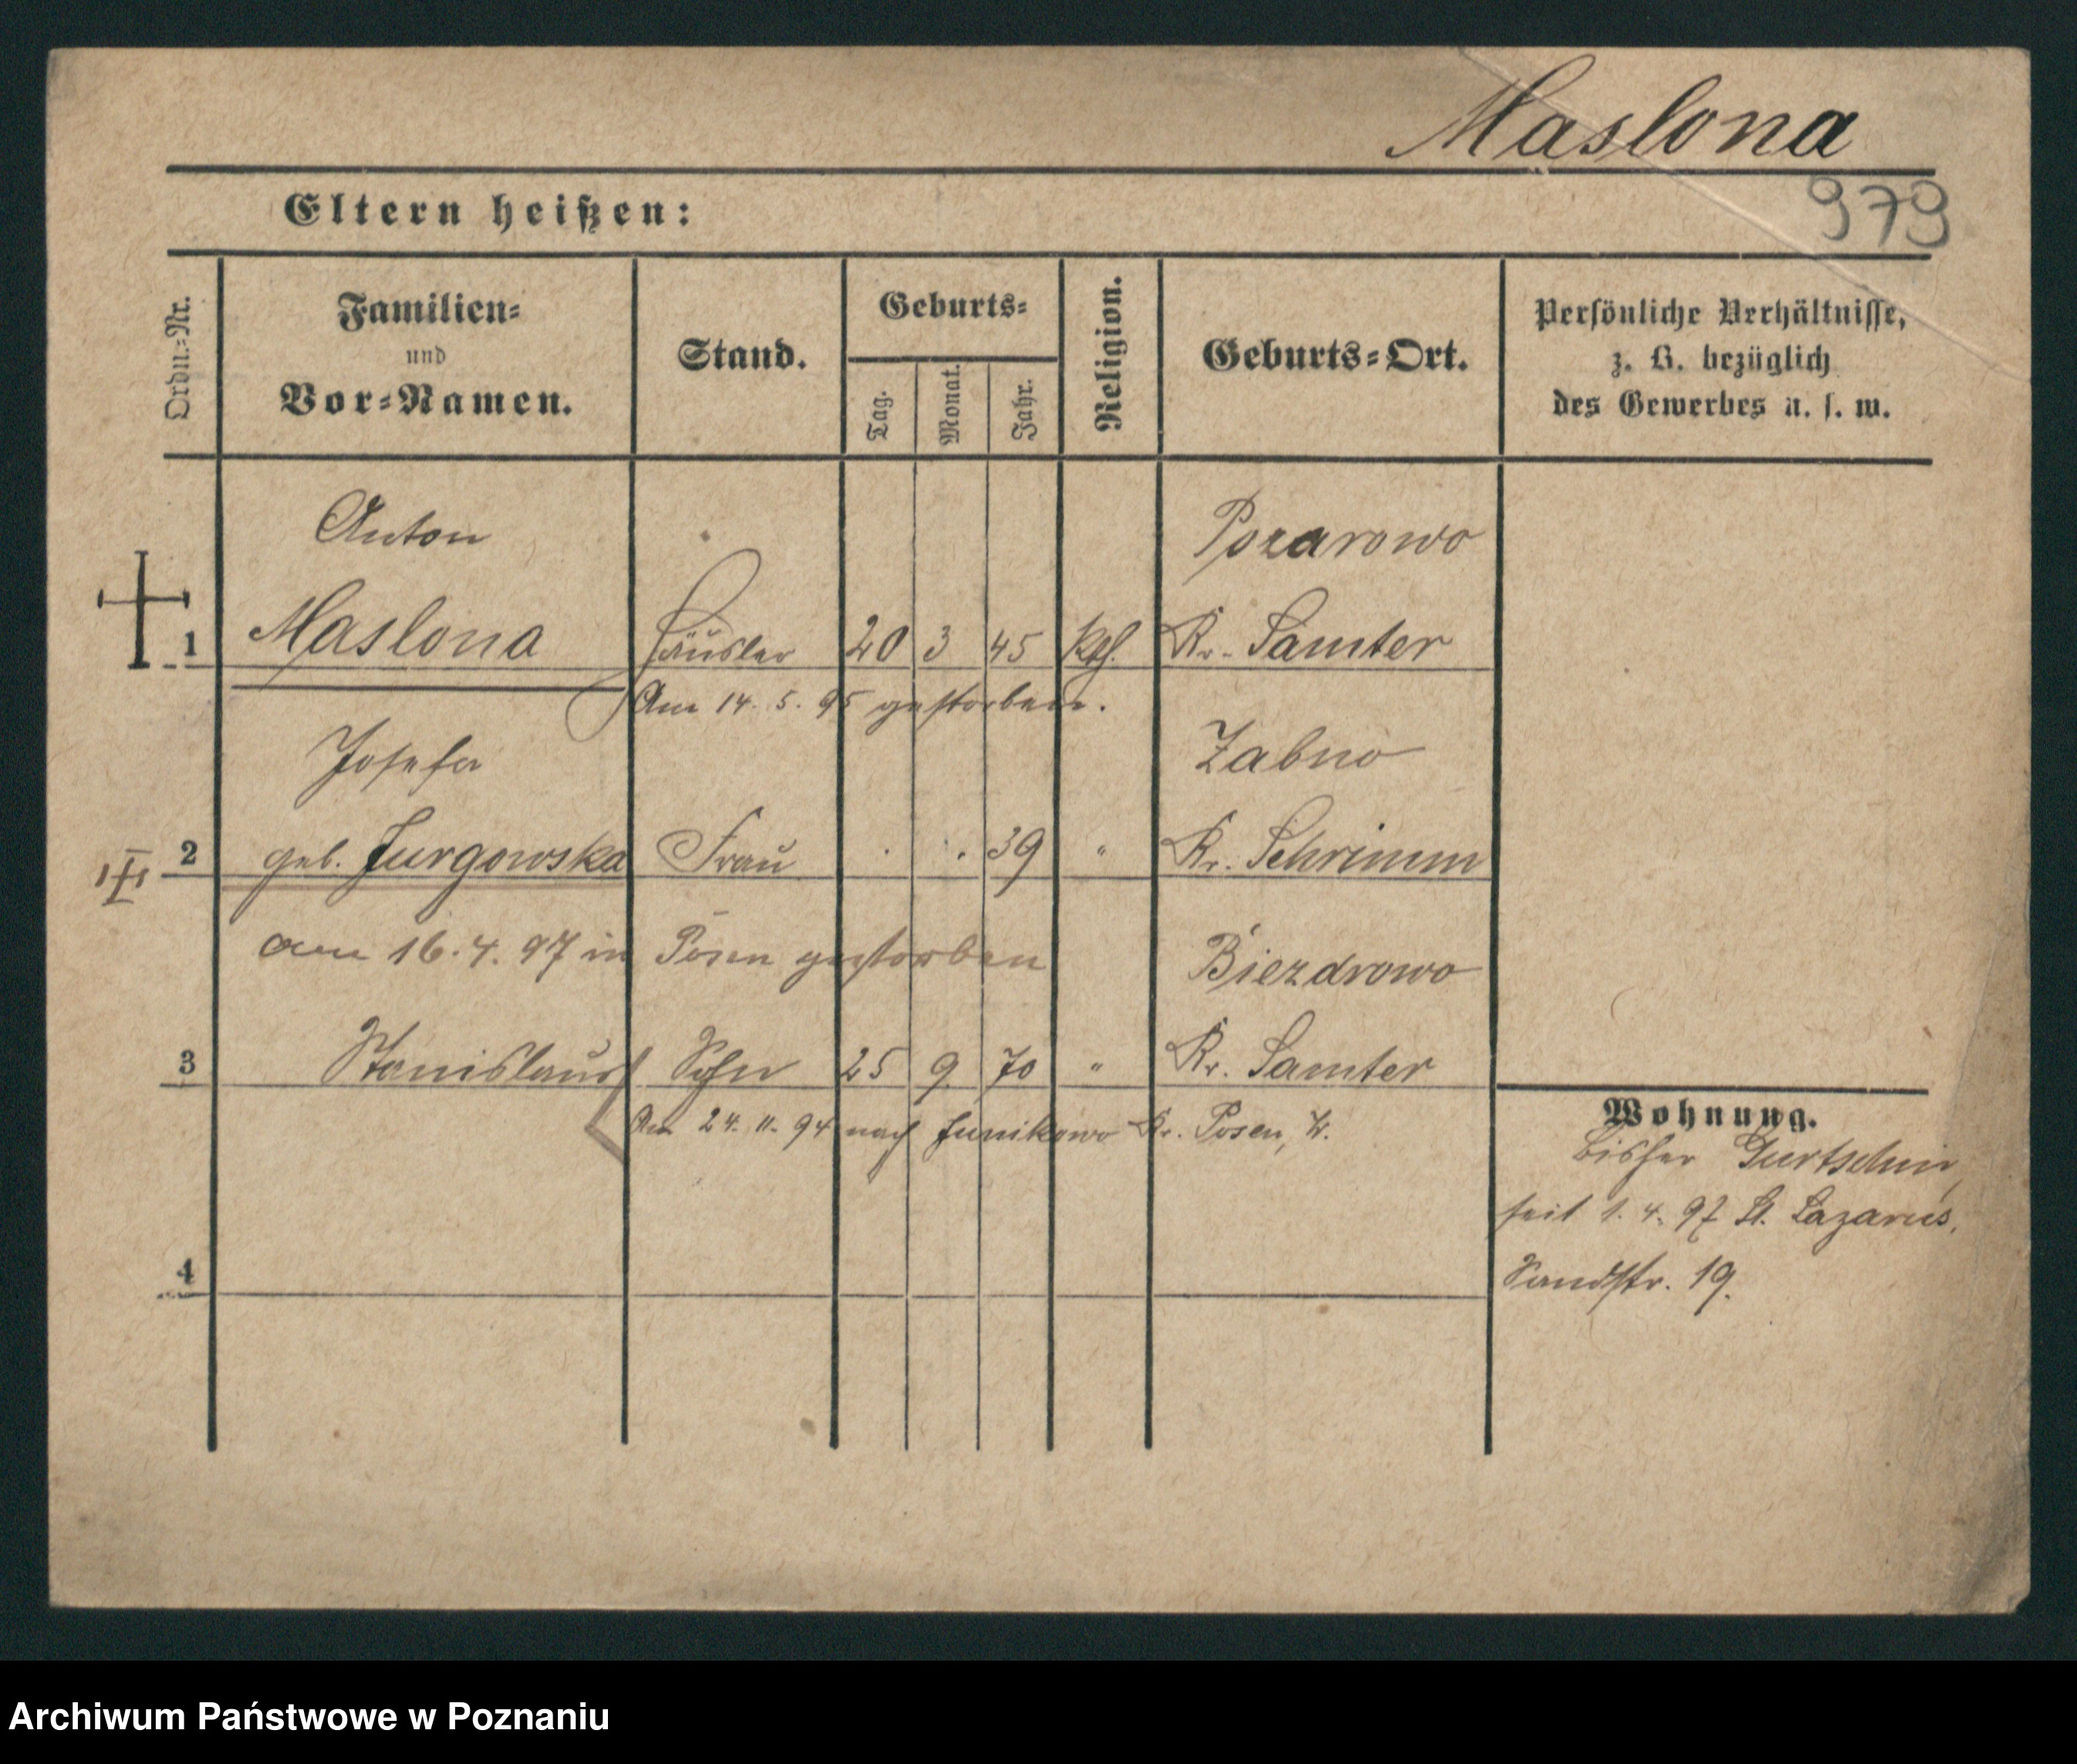 Maslona
979
Eltern heißen:
Ordn.-Nr.
Familien-
und
Vor-Namen.
Stand.
Geburts-
Tag.
Monat.
Jahr.
Religion.
Geburts-Ort.
Persönliche Verhältnisse,
z. B. bezüglich
des Gewerbes u. s. w.
Anton
Pozarowo
1 Maslona Häusler 20 3 45 kth. Kr. Samter
Am 14. 5. 95 gestorben.
Josefa
Zabno
2 geb. Jurgowska Frau . . 39 " Kr. Schrimm
am 16. 4. 97 in Posen gestorben
Biezdrowo
3 Stanislaus Sohn 25 9 70 " Kr. Samter
Am 24. 11. 94 nach Junikowo Kr. Posen, W.
4
Wohnung.
bisher Gurtschin,
seit 1. 4. 97 St. Lazarus,
Sandstr. 19.
Archiwum Państwowe w Poznaniu